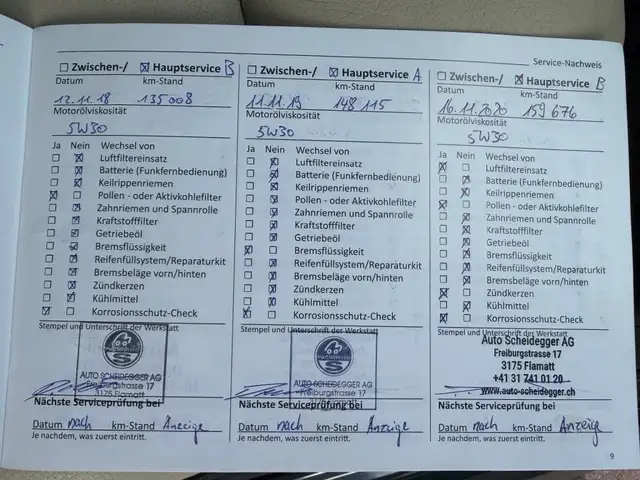 Service-Nachweis
Zwischen-/ Hauptservice B
Datum km-Stand
12.11.18 135008
Motorölviskosität
5W30
Ja Nein Wechsel von
Luftfiltereinsatz
Batterie (Funkfernbedienung)
Keilrippenriemen
Pollen - oder Aktivkohlefilter
Zahnriemen und Spannrolle
Kraftstofffilter
Getriebeöl
Bremsflüssigkeit
Reifenfüllsystem/Reparaturkit
Bremsbeläge vorn/hinten
Zündkerzen
Kühlmittel
Korrosionsschutz-Check
Stempel und Unterschrift der Werkstatt
AUTO SCHEIDEGGER AG
Freiburgstrasse 17
3175 Flamatt
Nächste Serviceprüfung bei
Datum nach km-Stand Anzeige
Je nachdem, was zuerst eintritt.
Zwischen-/ Hauptservice A
Datum km-Stand
11.11.19 148 115
Motorölviskosität
5W30
Ja Nein Wechsel von
Luftfiltereinsatz
Batterie (Funkfernbedienung)
Keilrippenriemen
Pollen - oder Aktivkohlefilter
Zahnriemen und Spannrolle
Kraftstofffilter
Getriebeöl
Bremsflüssigkeit
Reifenfüllsystem/Reparaturkit
Bremsbeläge vorn/hinten
Zündkerzen
Kühlmittel
Korrosionsschutz-Check
Stempel und Unterschrift der Werkstatt
AUTO SCHEIDEGGER AG
Freiburgstrasse 17
3175 Flamatt
Nächste Serviceprüfung bei
Datum nach km-Stand Anzeige
Je nachdem, was zuerst eintritt.
Zwischen-/ Hauptservice B
Datum km-Stand
16.11.2020 159 676
Motorölviskosität
5W30
Ja Nein Wechsel von
Luftfiltereinsatz
Batterie (Funkfernbedienung)
Keilrippenriemen
Pollen - oder Aktivkohlefilter
Zahnriemen und Spannrolle
Kraftstofffilter
Getriebeöl
Bremsflüssigkeit
Reifenfüllsystem/Reparaturkit
Bremsbeläge vorn/hinten
Zündkerzen
Kühlmittel
Korrosionsschutz-Check
Stempel und Unterschrift der Werkstatt
Auto Scheidegger AG
Freiburgstrasse 17
3175 Flamatt
+41 31 741 01 20
www.auto-scheidegger.ch
Nächste Serviceprüfung bei
Datum nach km-Stand Anzeige
Je nachdem, was zuerst eintritt.
9